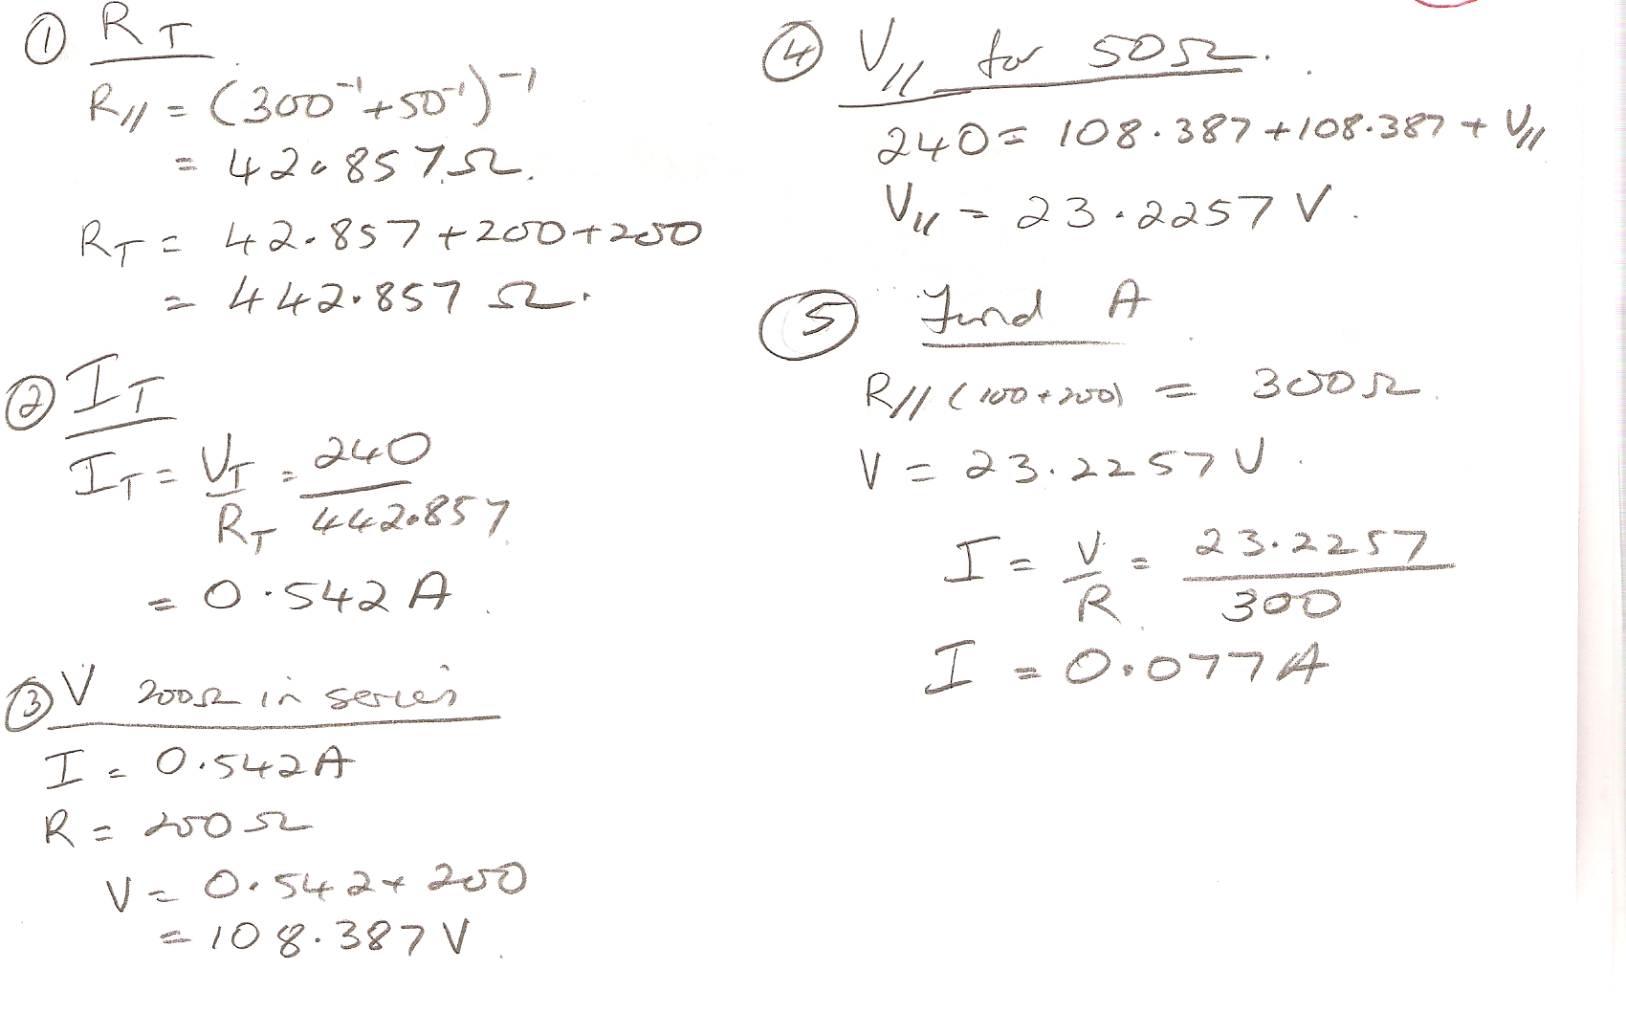 ① R_T
R// = (300⁻¹+50⁻¹)⁻¹
= 42.857Ω.
R_T = 42.857+200+200
= 442.857 Ω.
② I_T
I_T = V_T/R_T = 240/442.857
= 0.542 A.
③ V 200Ω in series
I = 0.542A
R = 200Ω
V = 0.542 × 200
= 108.387 V.
④ V// for 50Ω.
240 = 108.387+108.387+V//
V// = 23.2257 V.
⑤ Find A
R// (100+200) = 300Ω.
V = 23.2257 V.
I = V/R = 23.2257/300
I = 0.077A